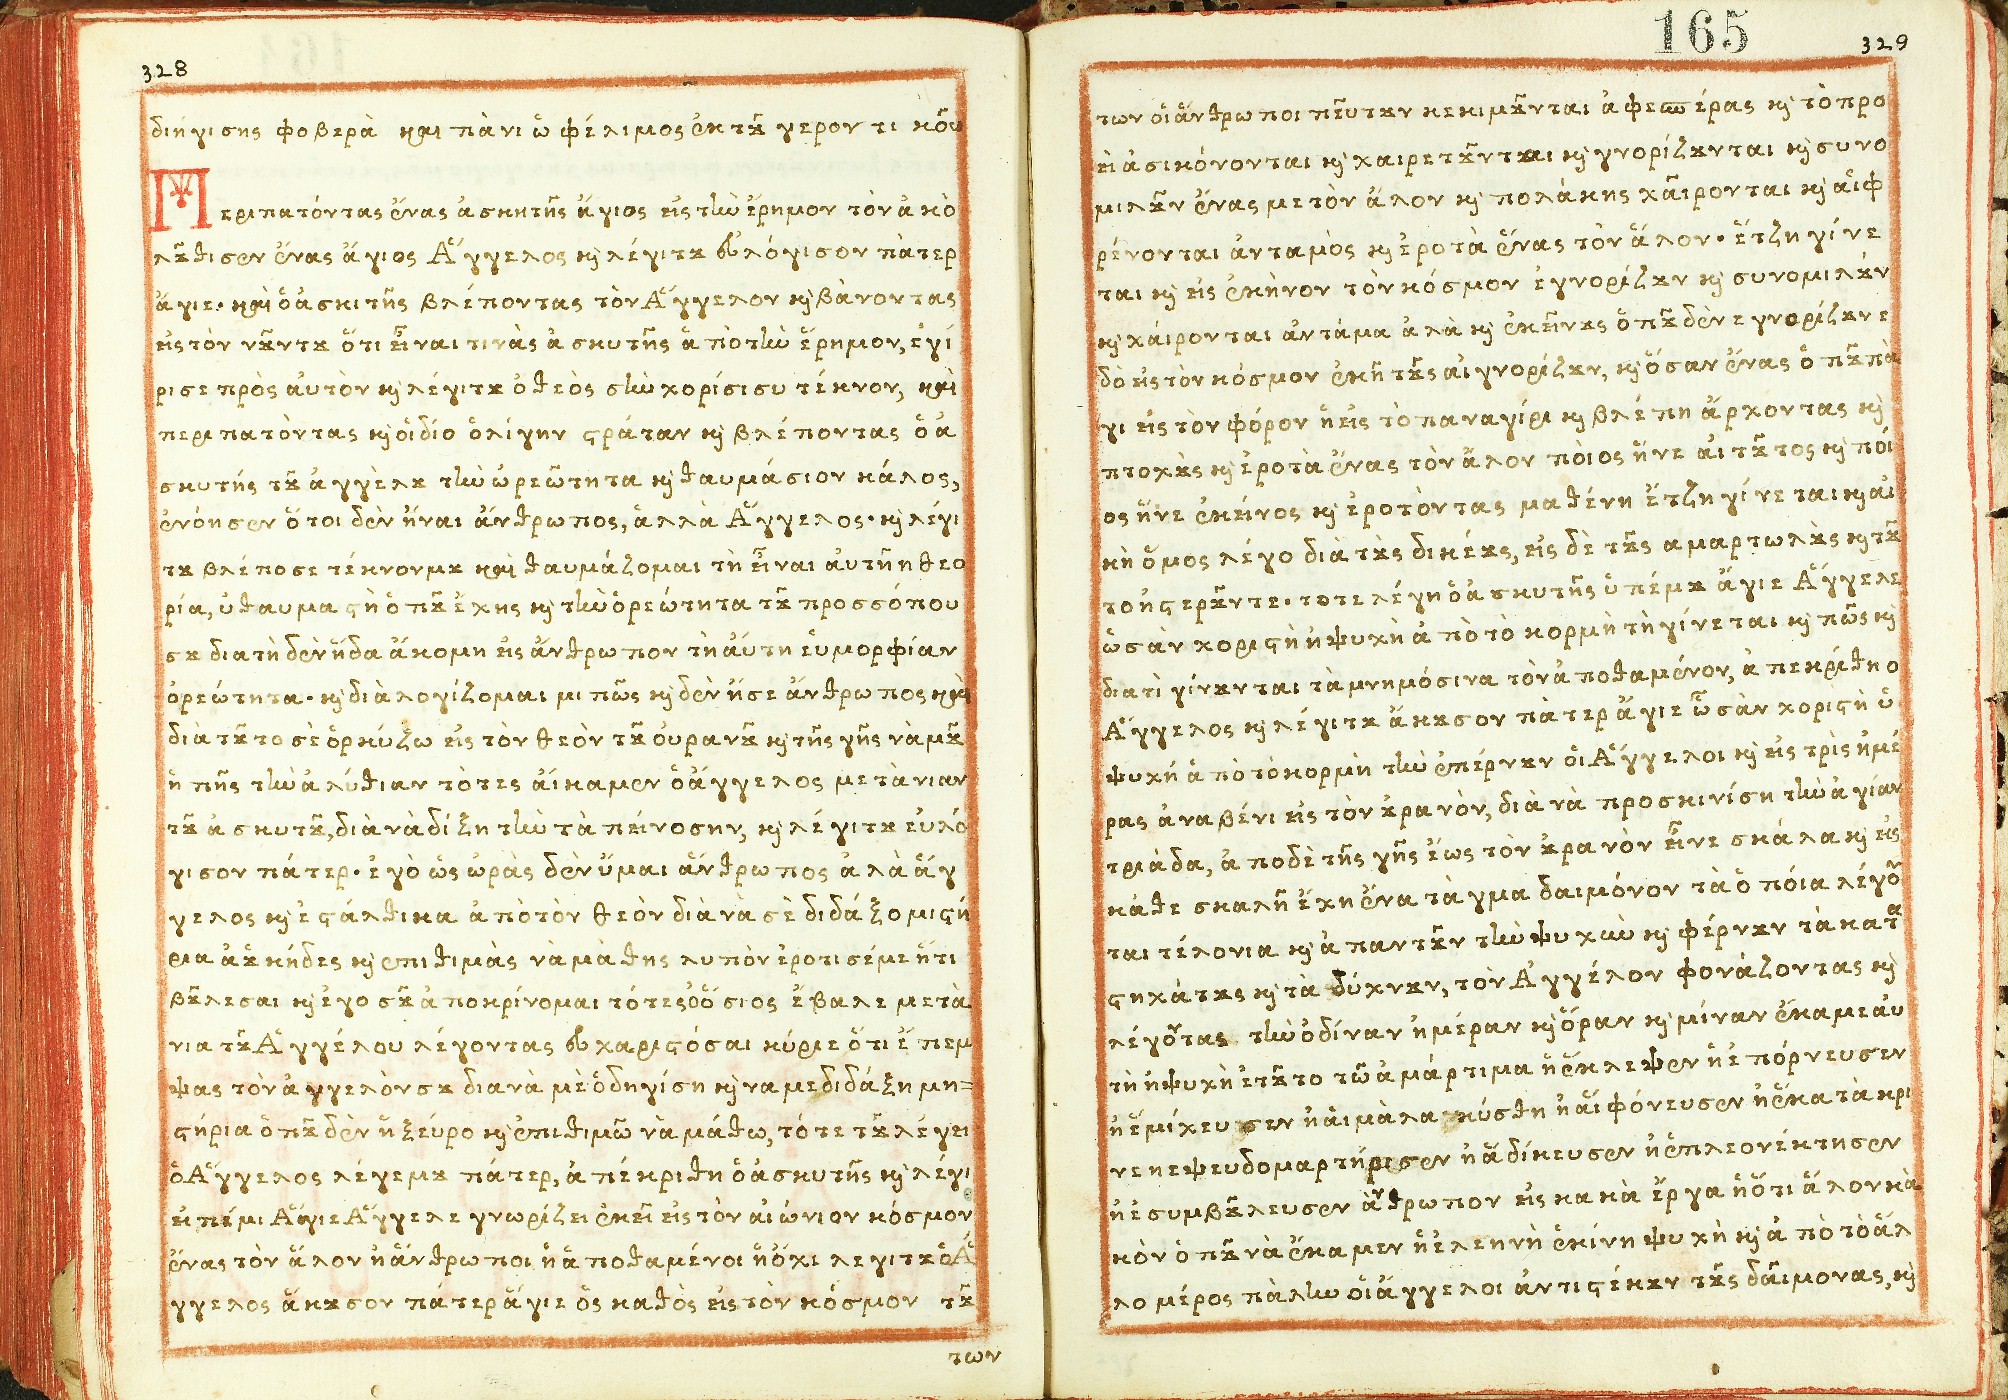 328
διήγισης φοβερὰ καὶ πὰνι ὠφέλιμος ἐκ τοῦ γεροντικοῦ
Περιπατόντας ἕνας ἀσκητῆς ἅγιος εἰς τὴν ἔρημον τὸν ἀκο
λοῦθισεν ἕνας ἅγιος Ἄγγελος κὶ λέγιτου εὐλόγισον πάτερ
ἅγιε· καὶ ὁ ἀσκιτῆς βλέποντας τὸν Ἄγγελον κὶ βάνοντας
εἰς τὸν νοῦντου ὅτι εἶναι τινὰς ἀσκυτῆς ἀπὸ τὴν ἔρημον, ἐγί
ρισε πρὸς αὐτὸν κὶ λέγιτου ὁ θεὸς συνχορίσισυ τέκνον, καὶ
περιπατόντας κὶ οἱ δίο ὀλίγην στράταν κὶ βλέποντας ὁ ἀ
σκυτής τοῦ ἀγγέλου τὴν ὡρεώτητα κὶ θαυμάσιον κάλος,
ἐνόησεν ὅτοι δὲν ἦναι ἄνθρωπος, ἀλλὰ Ἄγγελος· κὶ λέγι
του βλέποσε τέκνονμου καὶ θαυμάζομαι τὴ εἶναι αὐτὴ η θεο
ρία, ὑ θαυμαστὴ ὁποῦ ἔχης κὶ τὴν ὀρεώτητα τοῦ προσσόπου
σου διατὴ δὲν ἦδα ἄκομη εἰς ἄνθρωπον τὴ αὐτη εὐμορφίαν
ὀρεώτητα· κὶ διαλογίζομαι μιπῶς κὶ δὲν ἦσε ἄνθρωπος καὶ
διὰ τοῦτο σὲ ὁρκύζω εἰς τὸν θεὸν τοῦ οὐρανοῦ κὶ τῆς γῆς νὰ μοῦ
ἠπῆς τὴν ἀλύθιαν τότες αἴκαμεν ὁ ἄγγελος μετάνιαν
τοῦ ἀσκυτοῦ, διὰ νὰ δίξη τὴν ταπείνοσην, κὶ λέγιτου εὐλό
γισον πάτερ· ἐγὸ ὡς ὡρὰς δὲν ὕμαι ἄνθρωπος ἀλὰ ἄγ
γελος κὶ ἐστάλθικα ἀπὸ τὸν θεὸν διὰ νὰ σὲ διδάξο μιστή
ρια ἀοῦ κήδες κὶ ἐπιθιμὰς νὰ μάθης λυπὸν ἐροτισέμε ἥτι
βοῦλεσαι κὶ ἐγο σοῦ ἀποκρίνομαι τότες ὁ ὅσιος ἔβαλε μετὰ
νια τοῦ Ἀγγέλου λέγοντας εὐχαριστόσαι κύριε ὅτι ἔπεμ
ψας τὸν ἀγγελόνσου διανὰ μὲ ὁδηγίση κὶ να με διδάξη μη=
στήρια ὁποῦ δὲν ἤξεύρο κὶ ἐπιθιμῶ νὰ μάθω, τότε τοῦ λέγει
ὁ Ἄγγελος λέγεμου πάτερ, ἀπέκριθη ὁ ἀσκυτῆς κὶ λέγι
εἰπέμι Ἅγιε Ἄγγελε γνωρίζει ἐκεῖ εἰς τὸν αἰώνιον κόσμον
ἕνας τὸν ἄλον ἡ ἄνθρωποι ἡ ἀποθαμένοι ἢ ὄχι λεγιτου ὁ Ἄ
γγελος ἄκουσον πάτερ ἅγιε ὃς καθὸς εἰς τὸν κόσμον τοῦ
των
165
329
των οἱ ἄνθρωποι πεύτουν κεκιμοῦνται ἀφεσπέρας κὶ τὸ προ
εὶ ἀσικόνονται κὶ χαιρετοῦνται κὶ γνορίζουνται κὶ συνο
μιλοῦν ἕνας με τὸν ἄλον κὶ πολάκης χαῖρονται κὶ αἰφ
ρένονται ἀνταμὸς κὶ ἐροτὰ ἕνας τὸν ἄλον· ἔτζη γίνε
ται κὶ εἰς ἐκῆνον τὸν κόσμον ἐγνορίζουν κὶ συνομιλοῦν
κὶ χάιρονται ἀντάμα ἀλὰ κὶ ἐκεῖνους ὁποῦ δὲν εγνορίζουν ε
δὸ εἰς τὸν κόσμον ἐκῆ τοὺς αἰγνορίζουν, κὶ ὅσαν ἕνας ὁποῦ πὰ
γι εἰς τὸν φόρον ἢ εἰς τὸ παναγίρι κὶ βλέπη ἄρχοντας κὶ
πτοχοὺς κὶ ἐροτὰ ἕνας τὸν ἄλον πὸιος ἦνε αἰτοῦτος κὶ πόι
ος ἦνε ἐκείνος κὶ ἐροτόντας μαθένη ἔτζη γίνεται κὶ αἰ
κὴ ὅμος λέγο διὰ τοὺς δικέους, εἰς δὲ τοὺς αμαρτωλοὺς κὶ τοῦ
το ὑστεροῦντε· τοτε λέγη ὁ ἀσκυτῆς ὑπέμου ἅγιε Ἄγγελε
ὡσὰν χοριστὴ ἡ ψυχὴ ἀπὸ τὸ κορμὴ τὴ γίνεται κὶ πῶς κὶ
διατὶ γίνουνται τὰ μνημόσινα τὸν ἀποθαμένον, ἀπεκρίθη ο
Ἄγγελος κὶ λέγιτου ἄκουσον πάτερ ἅγιε ὡσὰν χοριστὴ ὑ
ψυχὴ ἀπὸ τὸ κορμὴ τὴν ἐπέρνουν οἱ Ἄγγελοι κὶ εἰς τρὶς ἡμέ
ρας ἀναβένι εἰς τὸν οὐρανὸν, διὰ νὰ προσκινίση τὴν ἁγίαν
τριάδα, ἀποδὲ τῆς γῆς ἕως τὸν οὐρανὸν εἶνε σκάλα κὶ εἰς
κάθε σκαλὴ ἔχη ἕνα τάγμα δαιμόνον τὰ ὁπόια λέγον
ται τέλονια κὶ ἀπαντοῦν τὴν ψυχὴν κὶ φέρνουν τὰ κατα
στηχάτους κὶ τὰ δύχνουν, τὸν Ἀγγέλον φονάζοντας κὶ
λέγοντας τὴν ὁδίναν ἡμέραν κὶ ὅραν κὶ μίναν ἔκαμε αὐ
τὴ ἡ ψυχὴ ἐτοῦτο τῶ ἁμάρτιμα ἢ ἔκλεψεν ἢ ἐπόρνευσεν
ἢ ἐμίχευσεν ἢ αἰμάλακύσθη ἢ αἰφόνευσεν ἢ ἐκατάκρι
νε ηεψευδομαρτήρισεν ἢ ἀδίκευσεν ἢ ἐπλεονέκτησεν
ἢ ἐσυμβούλευσεν ἄνθρωπον εἰς κακὰ ἔργα ἢ ὅτι ἄλον κὰ
κὸν ὁποῦ νὰ ἔκαμεν ἢ ἐλεηνὴ ἐκίνη ψυχὴ κὶ ἀπὸ τὸ ἄλ
λο μέρος πάλιν οἱ ἄγγελοι ἀντιστέκουν τοὺς δαῖμονας, κὶ